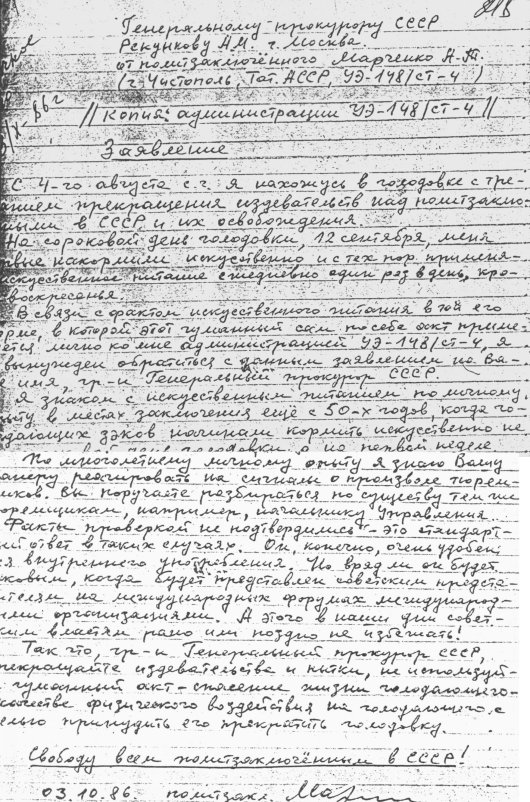 Генеральному прокурору СССР
Рекункову А.М. г. Москва.
от политзаключённого Марченко А.Т.
(г. Чистополь, Тат. АССР, УЭ-148/ст-4)
// Копия: администрации УЭ-148/ст-4 //
Заявление
С 4-го августа с.г. я нахожусь в голодовке с тре-
анием прекращения издевательств над политзаклю-
ными в СССР и их освобождения.
На сороковой день голодовки, 12 сентября, меня
накормили искусственно и с тех пор применя-
искусственное питание ежедневно один раз в день, кро-
воскресенья.
В связи с фактом искусственного питания в той его
орме, в которой этот гуманный сам по себе акт приме-
ется лично ко мне администрацией УЭ-148/ст-4, я
вынужден обратиться с данным заявлением на Ва-
е имя, гр-н Генеральный прокурор СССР.
Я знаком с искусственным питанием по личному
опыту в местах заключения ещё с 50-х годов, когда го-
дающих зэков начинали кормить искусственно не
голодовки, а на первой неделе
По многолетнему личному опыту я знаю Вашу
манеру реагировать на сигналы о произволе тюрем-
щиков. Вы поручаете разбираться по существу тем же
юремщикам, например, начальнику Управления.
Факты проверкой не подтвердились" - это стандарт-
ный ответ в таких случаях. Он, конечно, очень удобен
я внутреннего употребления. Но вряд ли он будет
аковым, когда будет представлен советским предста-
ителям на международных форумах международ-
ными организациями. А этого в наши дни совет-
ским властям рано или поздно не избежать!
Так что, гр-н Генеральный прокурор СССР,
прекращайте издевательства и пытки, не используй-
гуманный акт - спасение жизни голодающего -
качестве физического воздействия на голодающего с
елью принудить его прекратить голодовку.
Свободу всем политзаключённым в СССР!
03.10.86. политзакл.